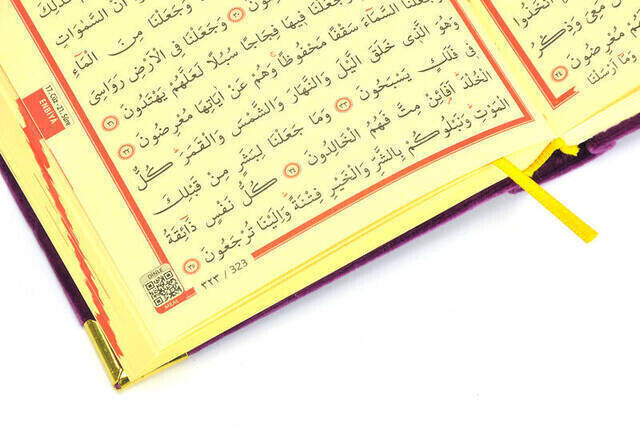 وَجَعَلْنَا مِنَ الْمَٓاءِ
وَجَعَلْنَا فِي الْاَرْضِ رَوَاسِيَ
وَجَعَلْنَا فِيهَا فِجَاجًا سُبُلًا لَعَلَّهُمْ يَهْتَدُونَ ﴿٣١﴾
وَجَعَلْنَا السَّمَٓاءَ سَقْفًا مَحْفُوظًا وَهُمْ عَنْ اٰيَاتِهَا مُعْرِضُونَ ﴿٣٢﴾
وَهُوَ الَّذِي خَلَقَ الَّيْلَ وَالنَّهَارَ وَالشَّمْسَ وَالْقَمَرَ كُلٌّ
فِي فَلَكٍ يَسْبَحُونَ ﴿٣٣﴾ وَمَا جَعَلْنَا لِبَشَرٍ مِنْ قَبْلِكَ
الْخُلْدَ اَفَا۬ئِنْ مِتَّ فَهُمُ الْخَالِدُونَ ﴿٣٤﴾ كُلُّ نَفْسٍ ذَٓائِقَةُ
الْمَوْتِ وَنَبْلُوكُمْ بِالشَّرِّ وَالْخَيْرِ فِتْنَةً وَاِلَيْنَا تُرْجَعُونَ ﴿٣٥﴾
17.Cüz - 21.Sûre
ENBİYA
DİNLE
٣٢٣ / 323
اتَّخَذُوا
مَنْ مَعِيَ وَذِكْرُ
مُعْرِضُونَ ﴿٢٤﴾
وَمَٓا اَرْسَلْنَا